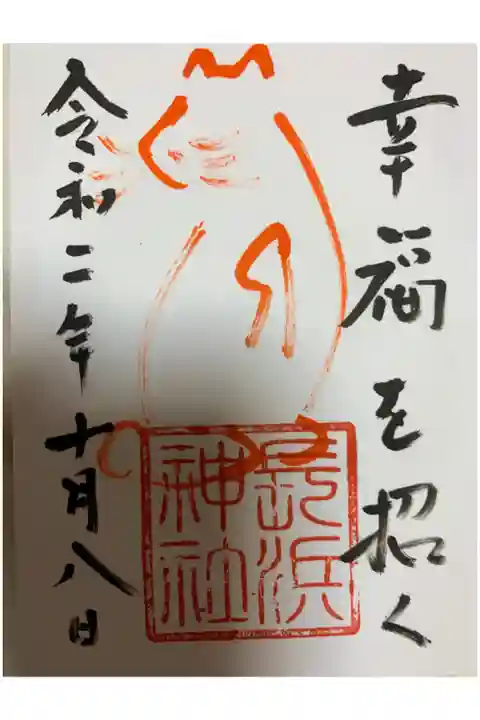 幸福を招く
長浜
神社
令和二年十月八日